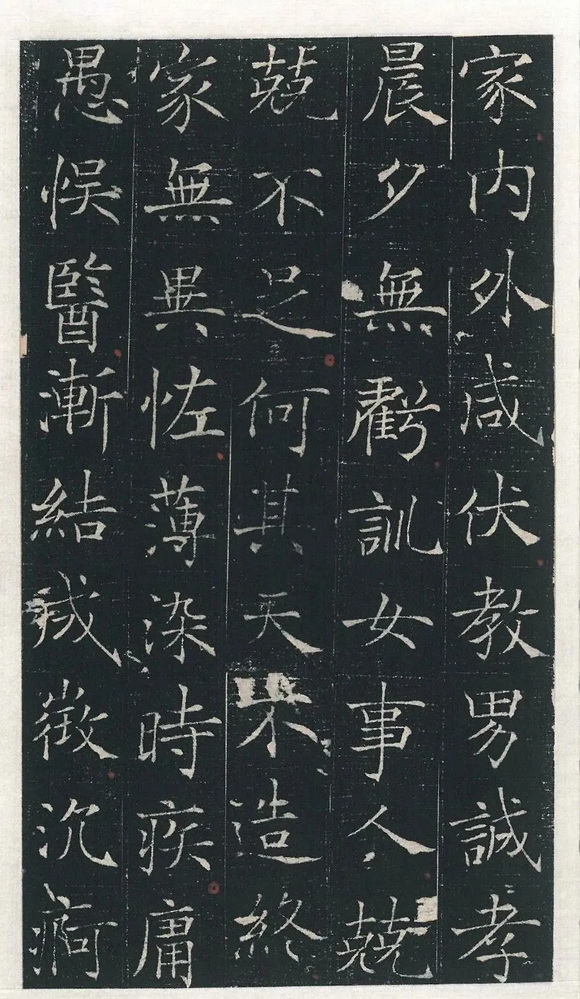 家内外咸伏教男誠孝
晨夕無虧訓女事人兢
兢不足何其天不造終
家無異恠薄染時疾庸
愚悮醫漸結戓徴沉痾